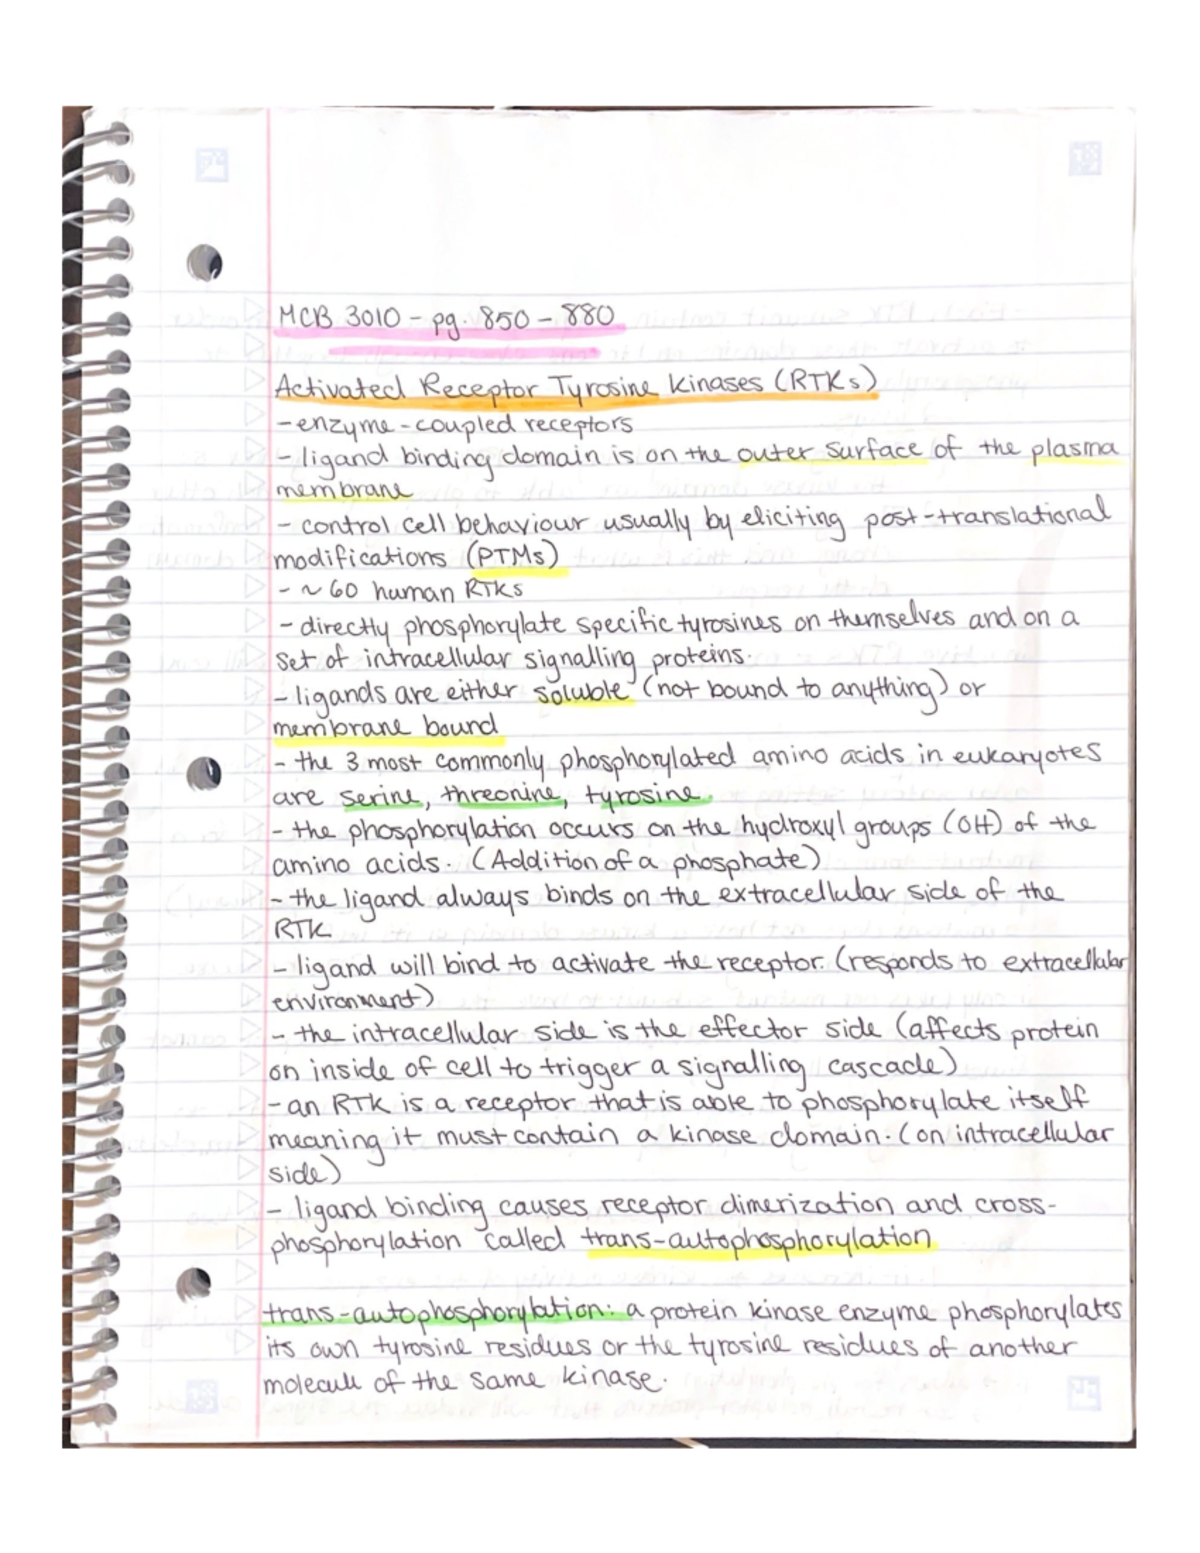 MCB 3010 - pg. 850 - 880
Activated Receptor Tyrosine kinases (RTKs)
- enzyme-coupled receptors
- ligand binding domain is on the outer surface of the plasma
membrane
- control cell behaviour usually by eliciting post-translational
modifications (PTMs)
- ~60 human RTKs
- directly phosphorylate specific tyrosines on themselves and on a
set of intracellular signalling proteins.
- ligands are either soluble (not bound to anything) or
membrane bound
- the 3 most commonly phosphorylated amino acids in eukaryotes
are serine, threonine, tyrosine.
- the phosphorylation occurs on the hydroxyl groups (OH) of the
amino acids. (Addition of a phosphate)
- the ligand always binds on the extracellular side of the
RTK
- ligand will bind to activate the receptor. (responds to extracellular
environment)
- the intracellular side is the effector side (affects protein
on inside of cell to trigger a signalling cascade)
- an RTK is a receptor that is able to phosphorylate itself
meaning it must contain a kinase domain. (on intracellular
side)
- ligand binding causes receptor dimerization and cross-
phosphorylation called trans-autophosphorylation
trans-autophosphorylation: a protein kinase enzyme phosphorylates
its own tyrosine residues or the tyrosine residues of another
molecule of the same kinase.